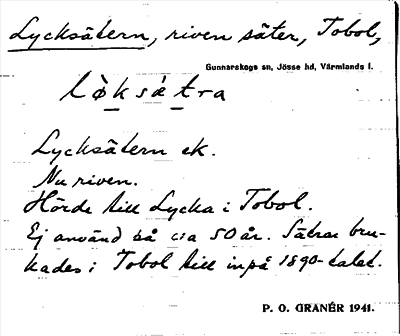 Lycksätern, riven säter, Tobol,
Gunnarskogs sn, Jösse hd, Värmlands l.
lø̀ksætra
Lycksätern ek.
Nu riven.
Hörde till Lycka i Tobol.
Ej använd på c:a 50 år. Sätrar bru-
kades i Tobol till inpå 1890-talet.
P. O. GRANÉR 1941.